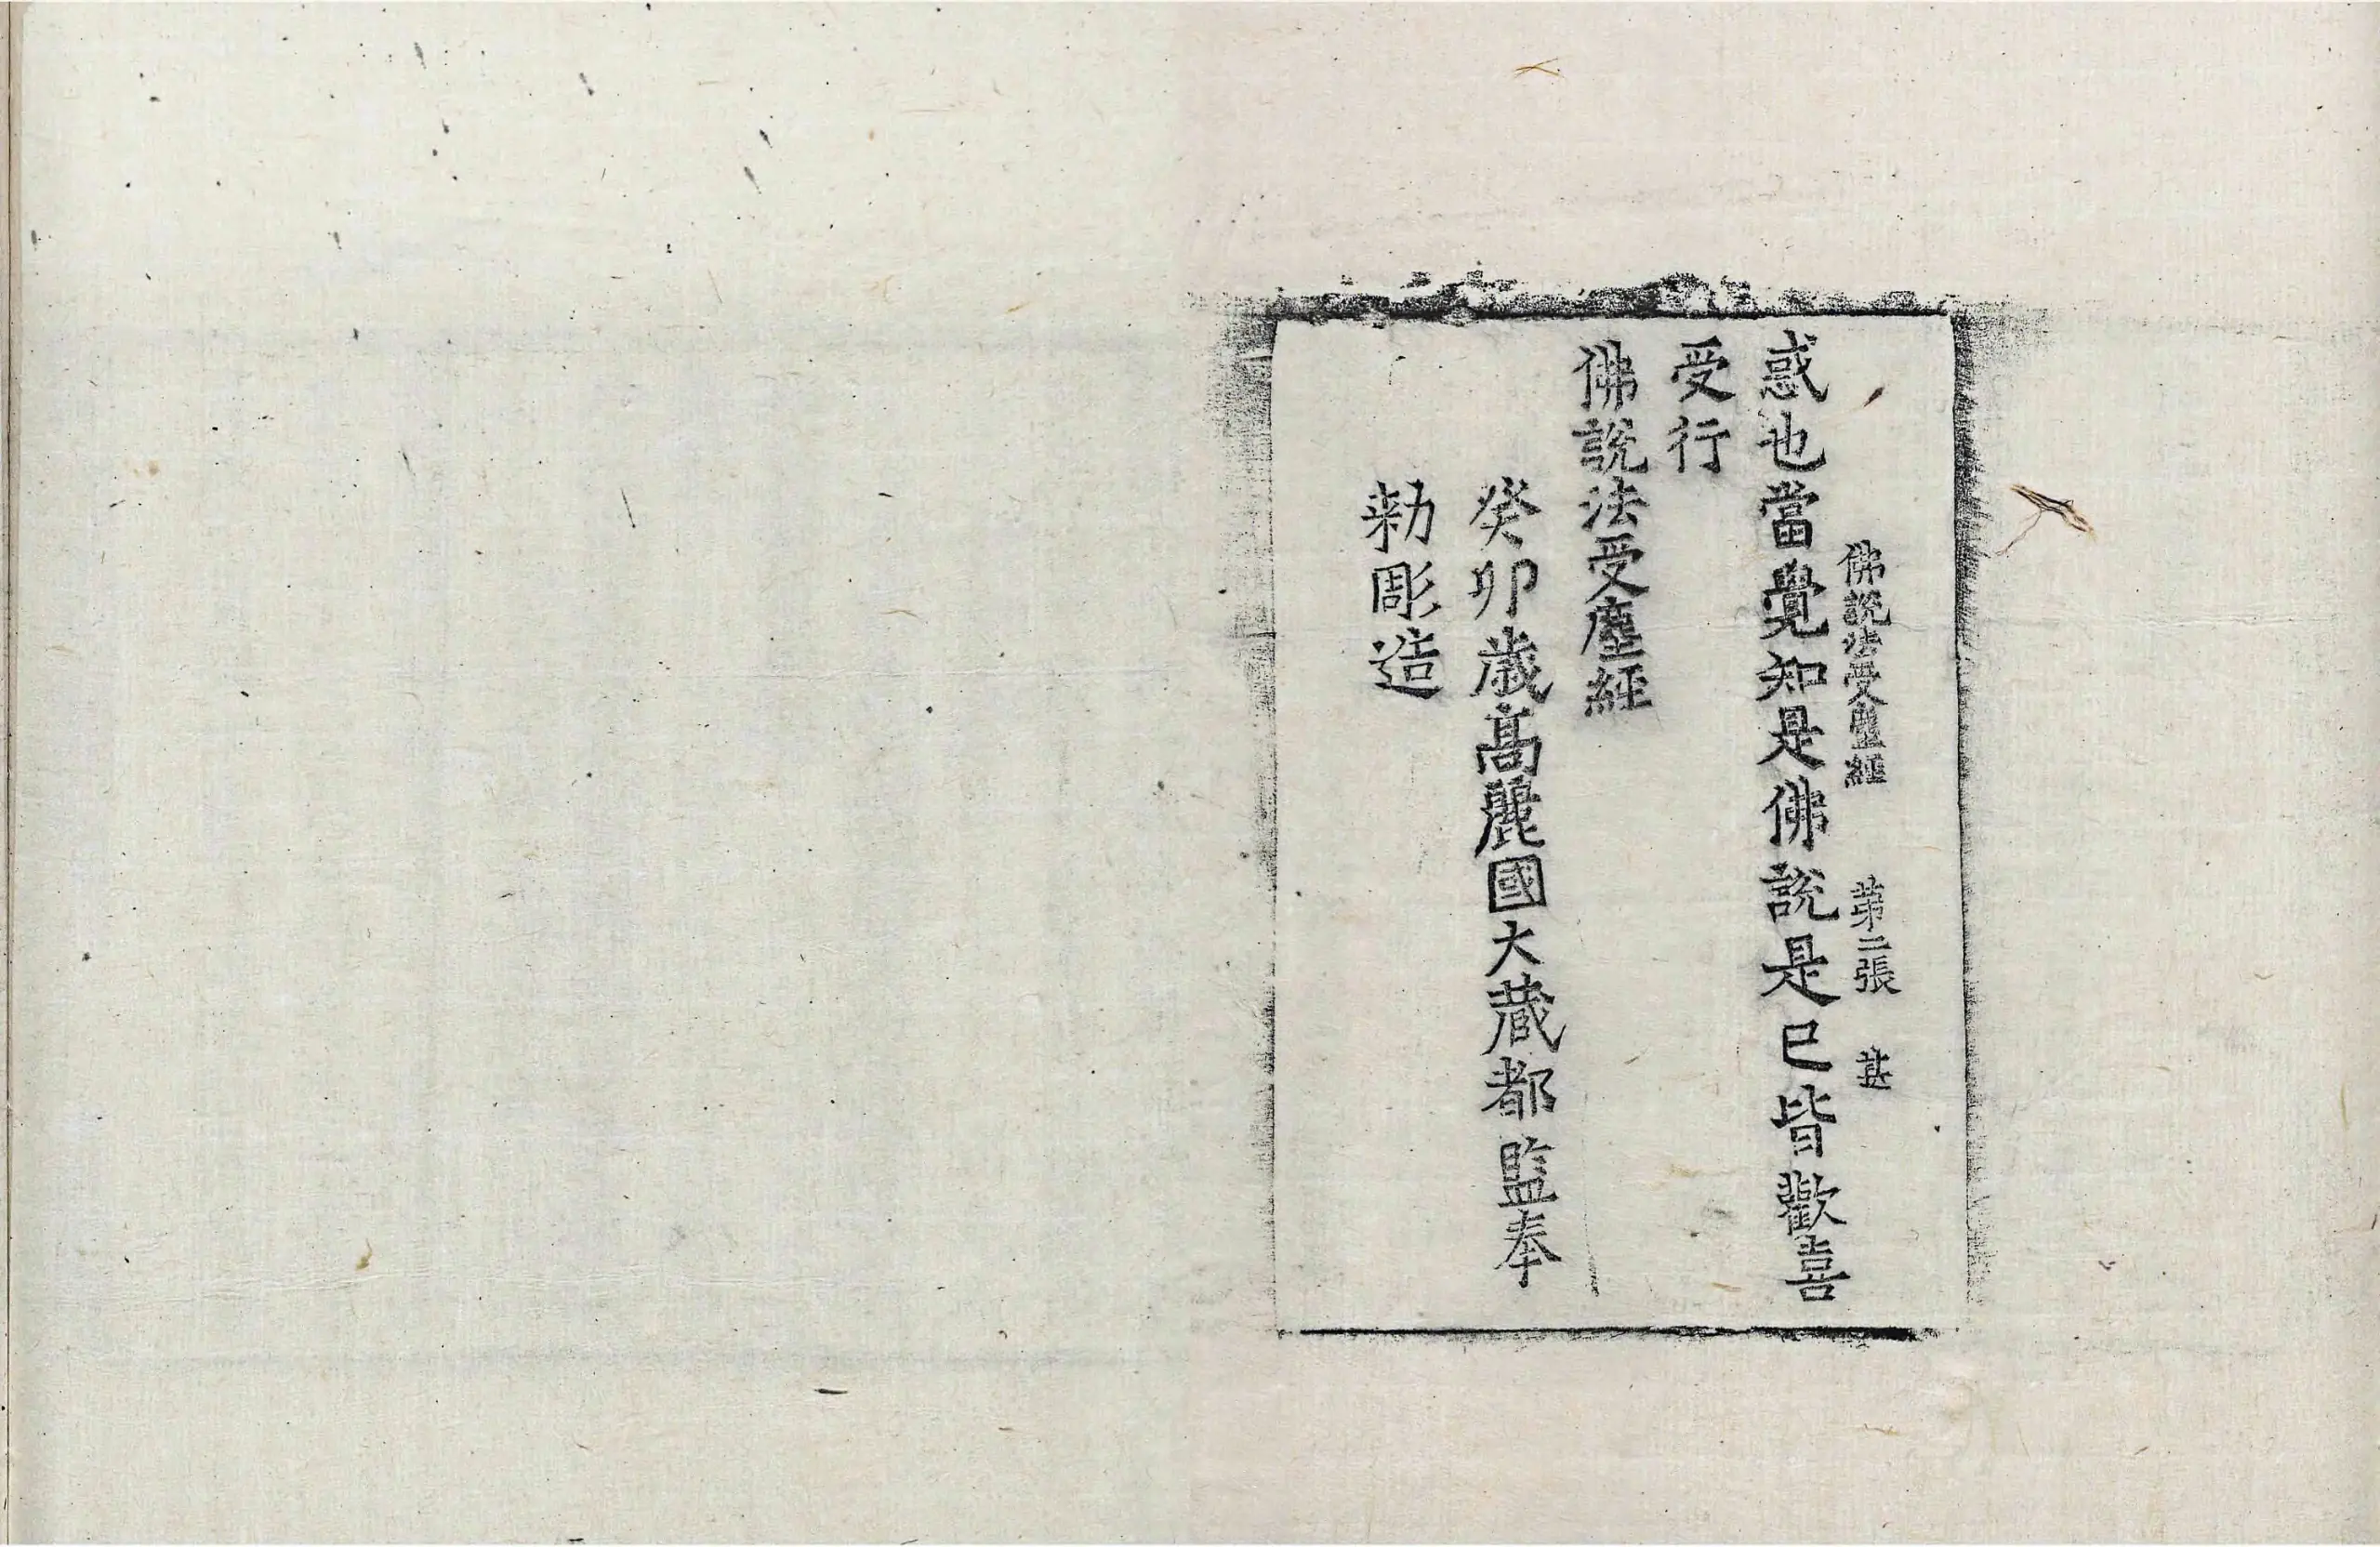 佛說法受塵經　第二張　甚
惑也當覺知是佛說是已皆歡喜
受行
佛說法受塵經
癸卯歲高麗國大藏都監奉
勅彫造